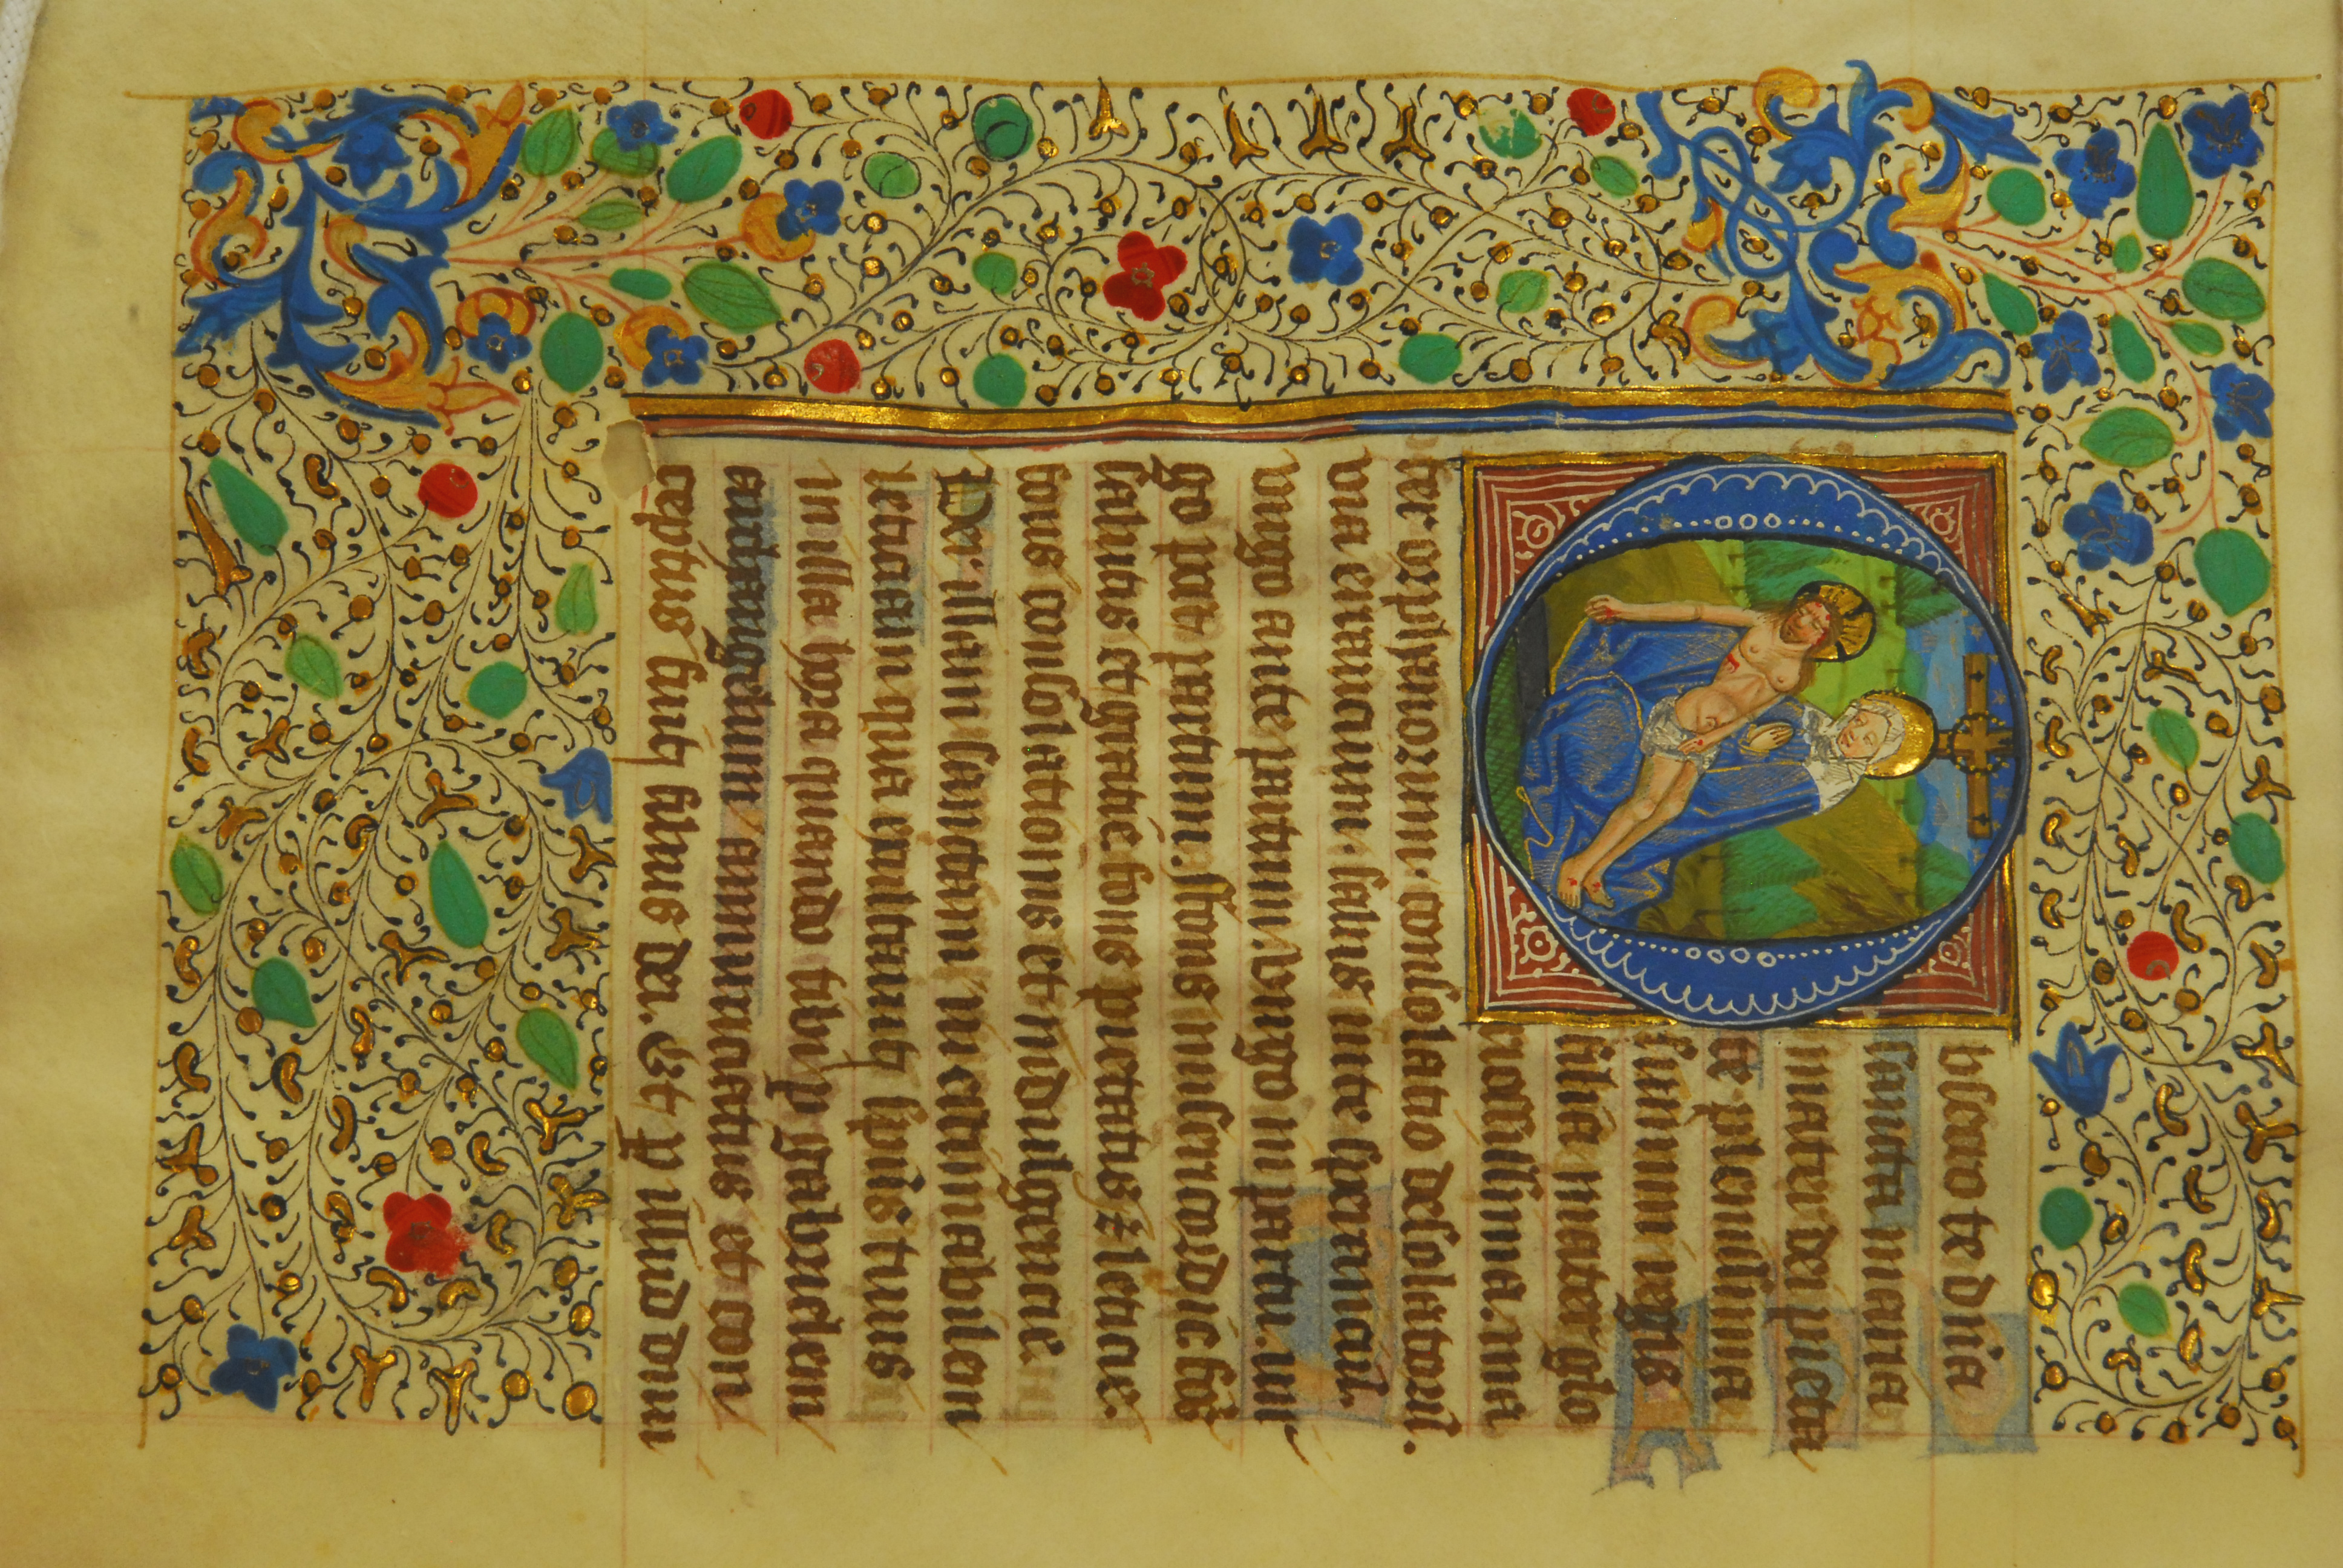 Obsecro te dña
sancta maria
mater dei pieta
te plenissima
summi regis
filia mater glo
riosissima. ma
ter orphanorum. consolatio desolatorũ.
via erranciũ. salus inte speranciũ.
virgo ante partum. virgo in partu. vir
go post partum. ffons misericordie. fõs
salutis et gratie. fons pietatis ⁊ leticie.
fons consolationis et indulgencie.
Per illam sanctam inestimabilem
leticiam qua exultauit sp̃us tuus
in illa hora quando tibi ꝑ gabrielem
archangelum annunciatus et con
ceptus fuit filius dei. Et ꝑ illud diui